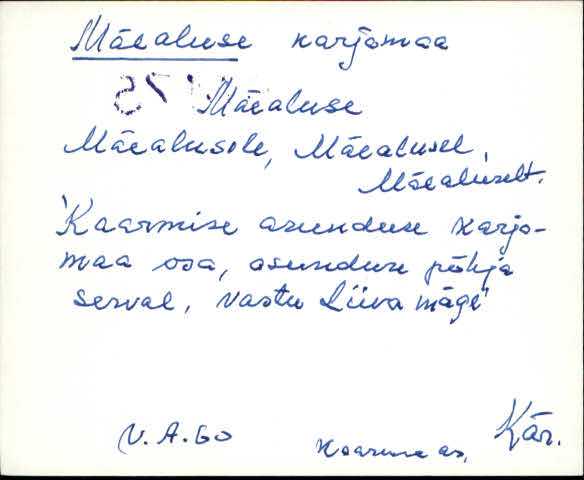 Mäealuse karjamaa
Mäealuse
Mäealusele, Mäealusel,
Mäealuselt.
'Kaarmise asunduse karja-
maa osa, asunduse põhja
serval, vastu Liiva mäge'
V. A. 60
Kaarma as. Kär.